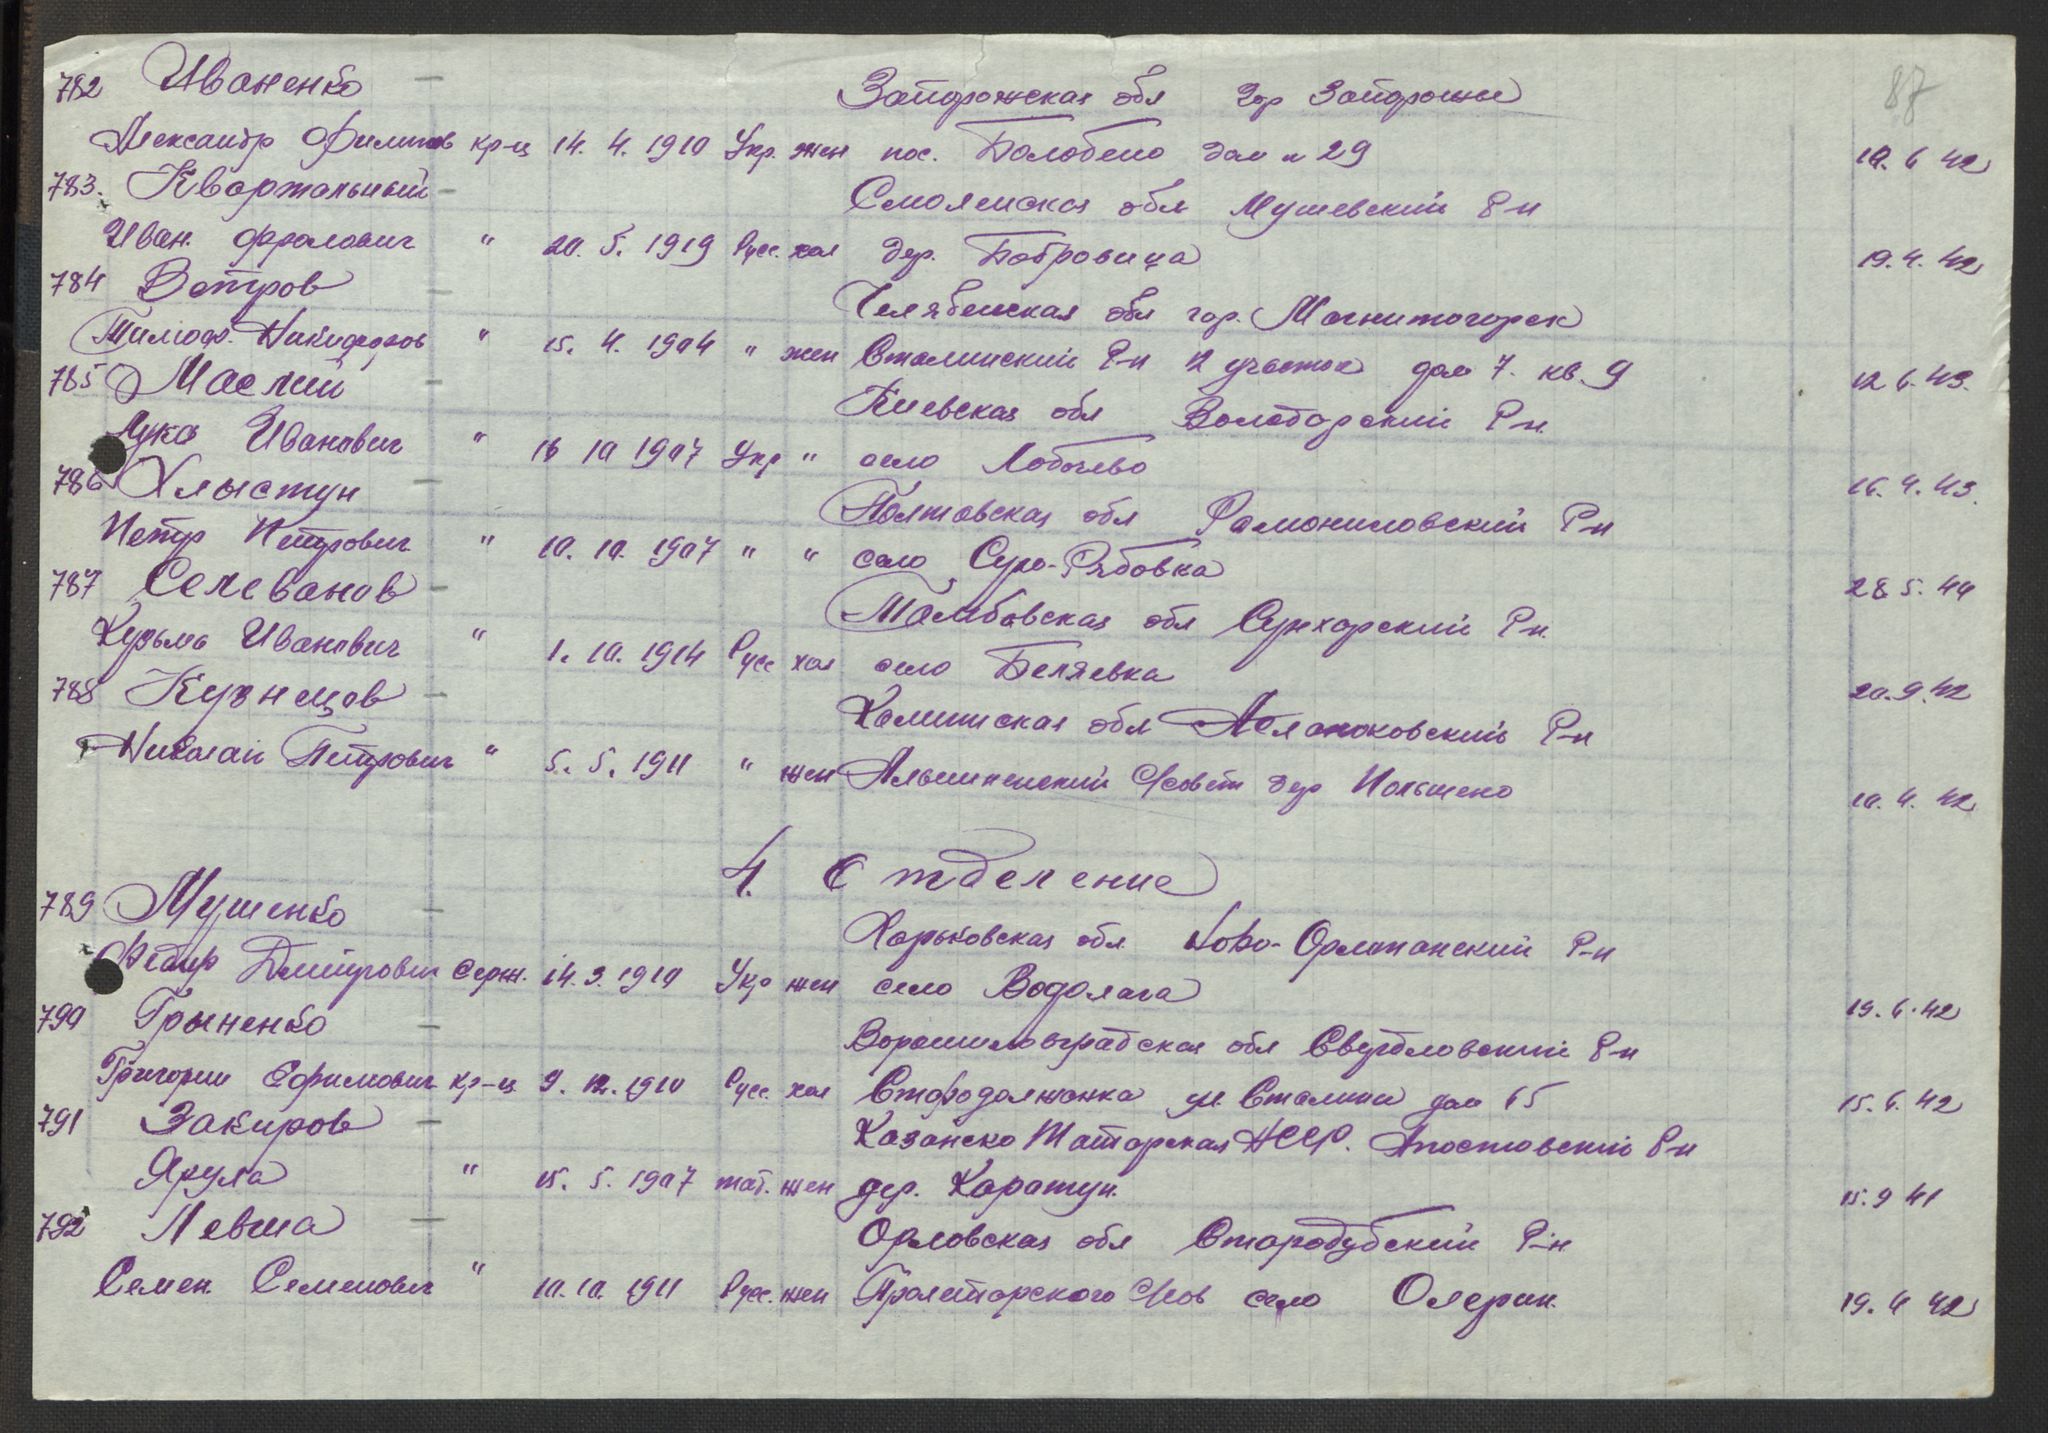 87
782 Иваненко — Запорожская обл гор Запорожье
Александр Филипов кр-ц 14. 4. 1910 Укр. жен пос. дом № 29 10. 6 42
783. Квартальный — Смоленская обл Р-н
Иван. Фролович " 20. 5. 1919 Русс. хол дер. Бобровица 19. 4. 42
784 Ветров — Челябенская обл гор. Магнитогорск
Тимоф. Никифоров " 15. 4. 1904 " жен Сталинский Р-н 12 участок дом 7. кв. 9 12 6. 43.
785 Маслий — Киевская обл Володарский Р-н.
Лука Иванович " 18 10 1907 Укр " село Лобачево 16. 4. 43.
786 Хлыстун — Полтавская обл Р-н
Петр Петрович " 10. 10. 1907 " " село 28 5. 44
787 Селеванов — Тамбовская обл Р-н.
Кузьма Иванович " 1. 10. 1914 Русс хол село Беляевка 20. 9. 42
788 Кузнецов — обл Р-н
Николай Петрович " 5. 5. 1911 " жен С/совет дер 10. 4. 42
4. Отделение
789 Мушенко — Харьковская обл. Ново- Р-н
Федир Дмитрович Серж. 14. 3. 1910 Укр жен село Водолага 19. 6. 42
790 Грыненко — Ворошиловградская обл Свердловский Р-н
Григории Ефимович кр-ц 9. 12. 1910 Русс. хол ул. Сталина дом 65 15. 6. 42
791 Закиров — Казанско Татарская АССР. Апостовский Р-н
Ярула " 15. 5. 1907 тат. жен дер. Каратун. 15. 9 41
792 Левша — Орловская обл Стародубский Р-н
Семен. Семенович " 10. 10. 1911 Русс. жен Пролетарского С/сов село 19. 4 42